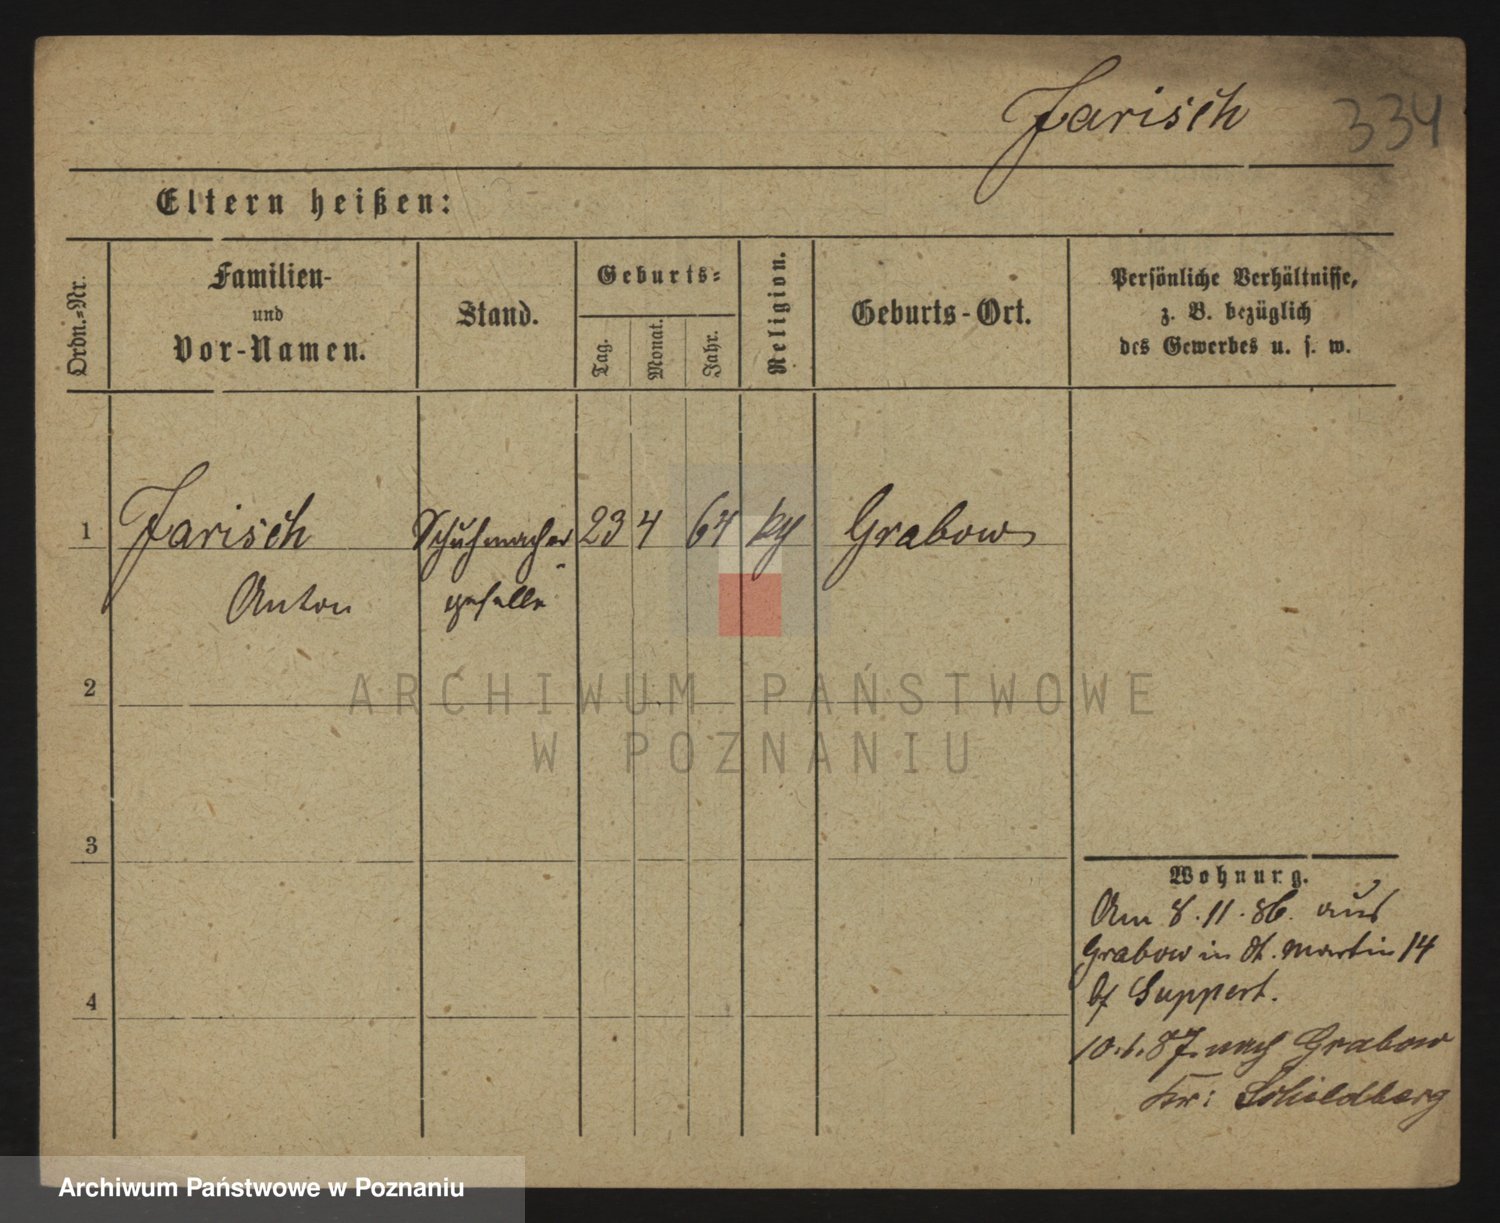 Jarisch 334
Eltern heißen:
Ordn.-Nr.
Familien-
und
Vor-Namen.
Stand.
Geburts-
Tag.
Monat.
Jahr.
Religion.
Geburts-Ort.
Persönliche Verhältnisse,
z. B. bezüglich
des Gewerbes u. s. w.
1 Jarisch Schuhmacher 23 4 64 Grabow
Anton geselle
2
ARCHIWUM PAŃSTWOWE
W POZNANIU
3
Wohnung.
Am 8.11.86. aus
Grabow in St. Martin 14
Suppert.
nach Grabow
Kr: Schildberg
4
Archiwum Państwowe w Poznaniu